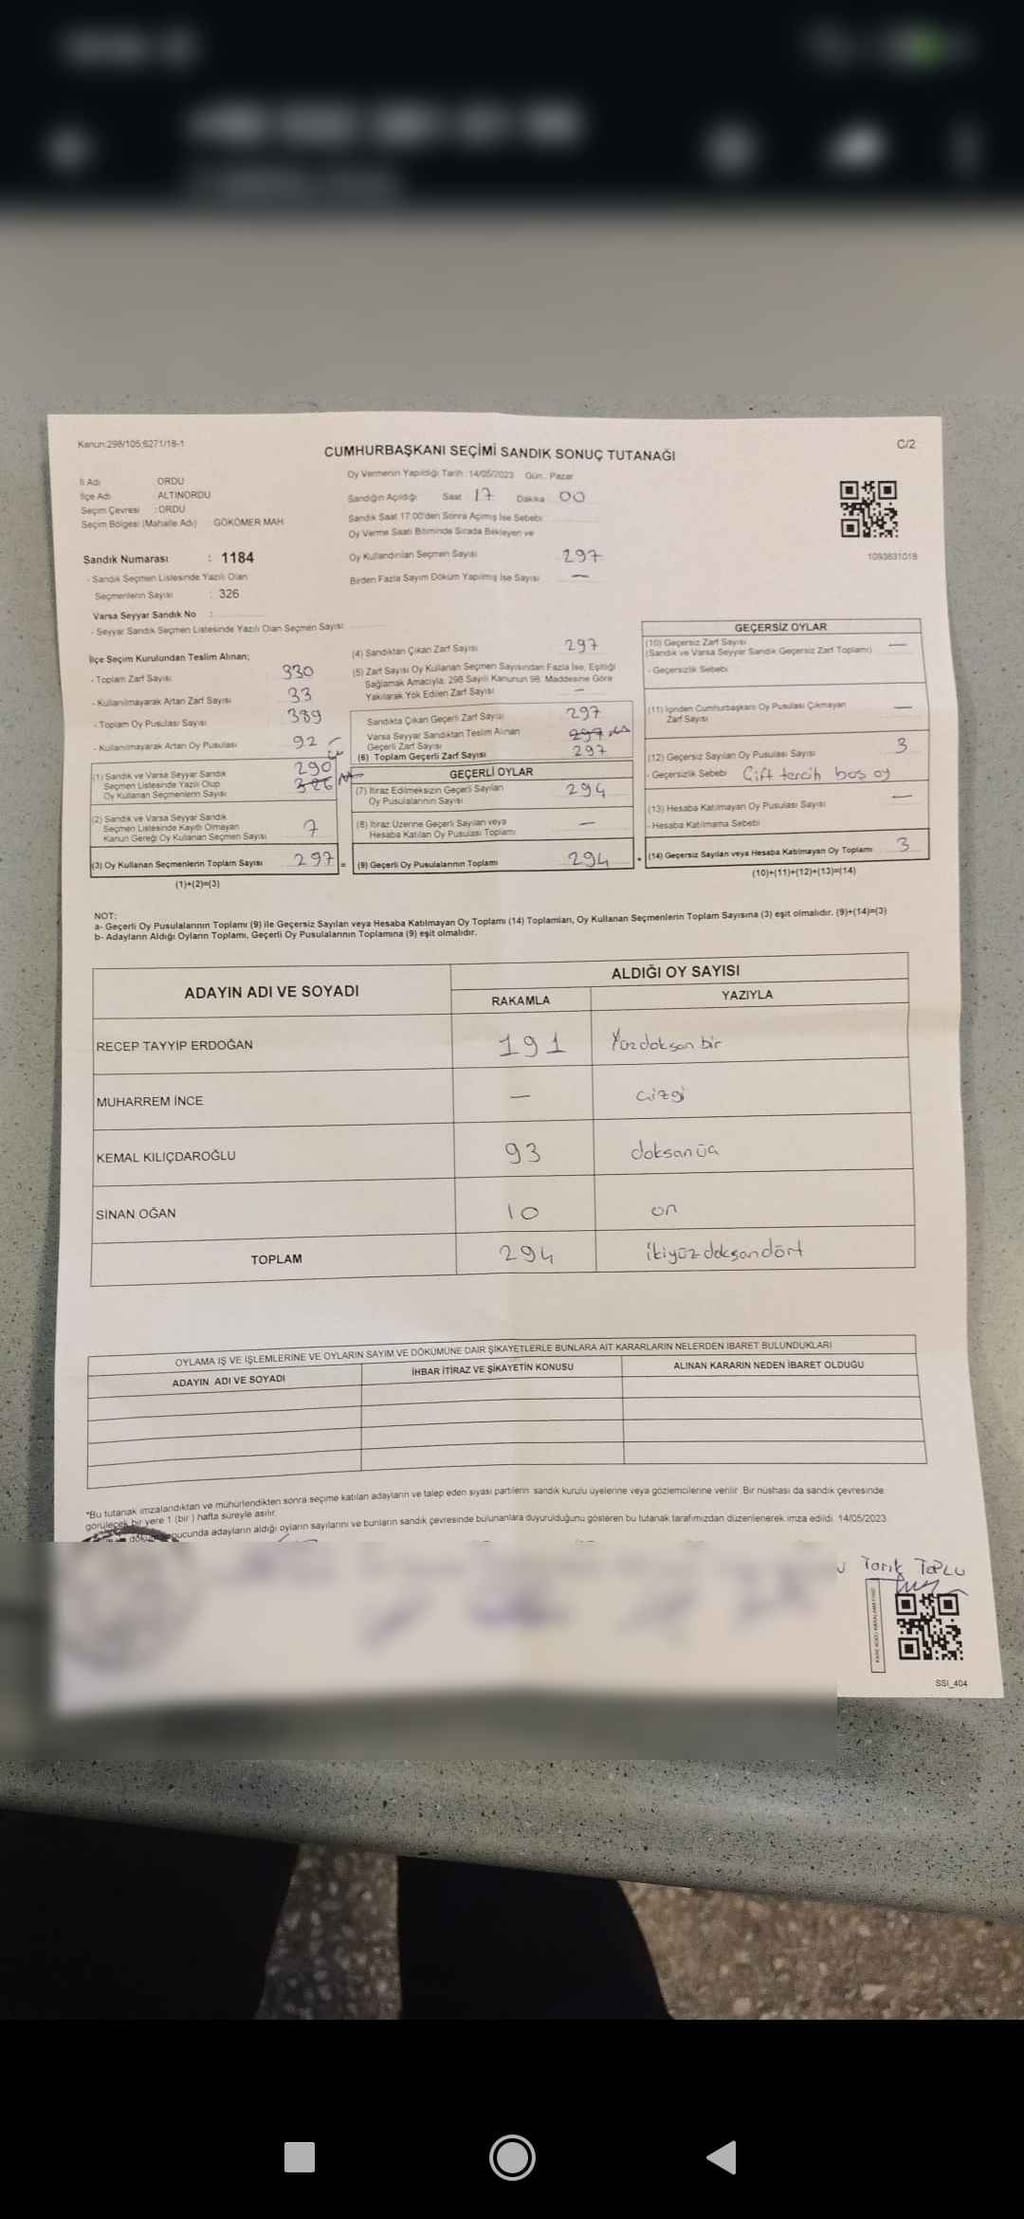 Kanun:298/105,6271/18-1
C/2
CUMHURBAŞKANI SEÇİMİ SANDIK SONUÇ TUTANAĞI
Oy Vermenin Yapıldığı Tarih :14/05/2023 Gün.. Pazar
İl Adı ORDU
İlçe Adı ALTINORDU
Seçim Çevresi :ORDU
Seçim Bölgesi (Mahalle Adı) GÖKÖMER MAH
Sandığın Açıldığı Saat 17 Dakika 00
Sandık Saat 17:00'den Sonra Açılmış İse Sebebi
Oy Verme Saati Bitiminde Sırada Bekleyen ve
Oy Kullandırılan Seçmen Sayısı 297
Birden Fazla Sayım Döküm Yapılmış İse Sayısı —
1093631018
Sandık Numarası : 1184
- Sandık Seçmen Listesinde Yazılı Olan
Seçmenlerin Sayısı : 326
Varsa Seyyar Sandık No :
- Seyyar Sandık Seçmen Listesinde Yazılı Olan Seçmen Sayısı:
İlçe Seçim Kurulundan Teslim Alınan;
- Toplam Zarf Sayısı 330
- Kullanılmayarak Artan Zarf Sayısı 33
- Toplam Oy Pusulası Sayısı 389
- Kullanılmayarak Artan Oy Pusulası 92
(1) Sandık ve Varsa Seyyar Sandık
Seçmen Listesinde Yazılı Olup
Oy Kullanan Seçmenlerin Sayısı
290
326
(2) Sandık ve Varsa Seyyar Sandık
Seçmen Listesinde Kayıtlı Olmayan
Kanun Gereği Oy Kullanan Seçmen Sayısı 7
(3) Oy Kullanan Seçmenlerin Toplam Sayısı 297 =
(1)+(2)=(3)
(4) Sandıktan Çıkan Zarf Sayısı 297
(5) Zarf Sayısı Oy Kullanan Seçmen Sayısından Fazla İse, Eşitliği
Sağlamak Amacıyla; 298 Sayılı Kanunun 98. Maddesine Göre
Yakılarak Yok Edilen Zarf Sayısı —
Sandıkta Çıkan Geçerli Zarf Sayısı 297
Varsa Seyyar Sandıktan Teslim Alınan
Geçerli Zarf Sayısı 297
(6) Toplam Geçerli Zarf Sayısı 297
GEÇERLİ OYLAR
(7) İtiraz Edilmeksizin Geçerli Sayılan
Oy Pusulalarının Sayısı 294
(8) İtiraz Üzerine Geçerli Sayılan veya
Hesaba Katılan Oy Pusulası Toplamı —
(9) Geçerli Oy Pusulalarının Toplamı 294 +
GEÇERSİZ OYLAR
(10) Geçersiz Zarf Sayısı
(Sandık ve Varsa Seyyar Sandık Geçersiz Zarf Toplamı) —
- Geçersizlik Sebebi
(11) İçinden Cumhurbaşkanı Oy Pusulası Çıkmayan
Zarf Sayısı —
(12) Geçersiz Sayılan Oy Pusulası Sayısı 3
- Geçersizlik Sebebi Çift tercih boş oy
(13) Hesaba Katılmayan Oy Pusulası Sayısı —
- Hesaba Katılmama Sebebi
(14) Geçersiz Sayılan veya Hesaba Katılmayan Oy Toplamı 3
(10)+(11)+(12)+(13)=(14)
NOT:
a- Geçerli Oy Pusulalarının Toplamı (9) ile Geçersiz Sayılan veya Hesaba Katılmayan Oy Toplamı (14) Toplamları, Oy Kullanan Seçmenlerin Toplam Sayısına (3) eşit olmalıdır. (9)+(14)=(3)
b- Adayların Aldığı Oyların Toplamı, Geçerli Oy Pusulalarının Toplamına (9) eşit olmalıdır.
ADAYIN ADI VE SOYADI
ALDIĞI OY SAYISI
RAKAMLA YAZIYLA
RECEP TAYYİP ERDOĞAN 191 Yüzdoksan bir
MUHARREM İNCE — çizgi
KEMAL KILIÇDAROĞLU 93 doksanüç
SİNAN OĞAN 10 on
TOPLAM 294 ikiyüz doksandört
OYLAMA İŞ VE İŞLEMLERİNE VE OYLARIN SAYIM VE DÖKÜMÜNE DAİR ŞİKAYETLERLE BUNLARA AİT KARARLARIN NELERDEN İBARET BULUNDUKLARI
ADAYIN ADI VE SOYADI İHBAR İTİRAZ VE ŞİKAYETİN KONUSU ALINAN KARARIN NEDEN İBARET OLDUĞU
*Bu tutanak imzalandıktan ve mühürlendikten sonra seçime katılan adayların ve talep eden siyasi partilerin sandık kurulu üyelerine veya gözlemcilerine verilir. Bir nüshası da sandık çevresinde
görülecek bir yere 1 (bir ) hafta süreyle asılır.
adayların aldığı oyların sayılarını ve bunların sandık çevresinde bulunanlara duyurulduğunu gösteren bu tutanak tarafımızdan düzenlenerek imza edildi. 14/05/2023
Tarık TOPLU
SSI_404